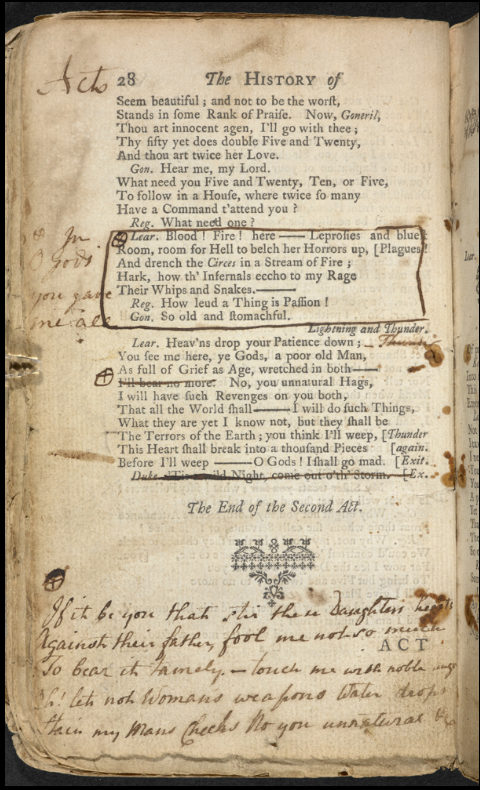 Act
28 The HISTORY of
Seem beautiful; and not to be the worſt,
Stands in ſome Rank of Praiſe. Now, Goneril,
Thou art innocent agen, I'll go with thee;
Thy fifty yet does double Five and Twenty,
And thou art twice her Love.
Gon. Hear me, my Lord.
What need you Five and Twenty, Ten, or Five,
To follow in a Houſe, where twice ſo many
Have a Command t'attend you?
Reg. What need one?
Lear. Blood! Fire! here—— Leproſies and blueſt
Room, room for Hell to belch her Horrors up, [Plagues!
And drench the Circes in a Stream of Fire;
Hark, how th' Infernals eccho to my Rage
Their Whips and Snakes.——
Reg. How leud a Thing is Paſſion!
Gon. So old and ſtomachful.
Gods
you gave
me all
Lightning and Thunder.
Lear. Heav'ns drop your Patience down;
You ſee me here, ye Gods, a poor old Man,
As full of Grief as Age, wretched in both——
I'll bear no more: No, you unnatural Hags,
I will have ſuch Revenges on you both,
That all the World ſhall—— I will do ſuch Things,
What they are yet I know not, but they ſhall be
The Terrors of the Earth; you think I'll weep, [Thunder
This Heart ſhall break into a thouſand Pieces [again.
Before I'll weep —— O Gods! I ſhall go mad. [Exit.
Duke. 'Tis a wild Night, come out o'th' Storm. [Ex.
The End of the Second Act.
If it be you that stir these Daughters hearts
Against their father, fool me not so much
ACT
To bear it tamely — touch me with noble
let not Womans weapons Water drops
Stain my Mans Cheeks No you unnatural